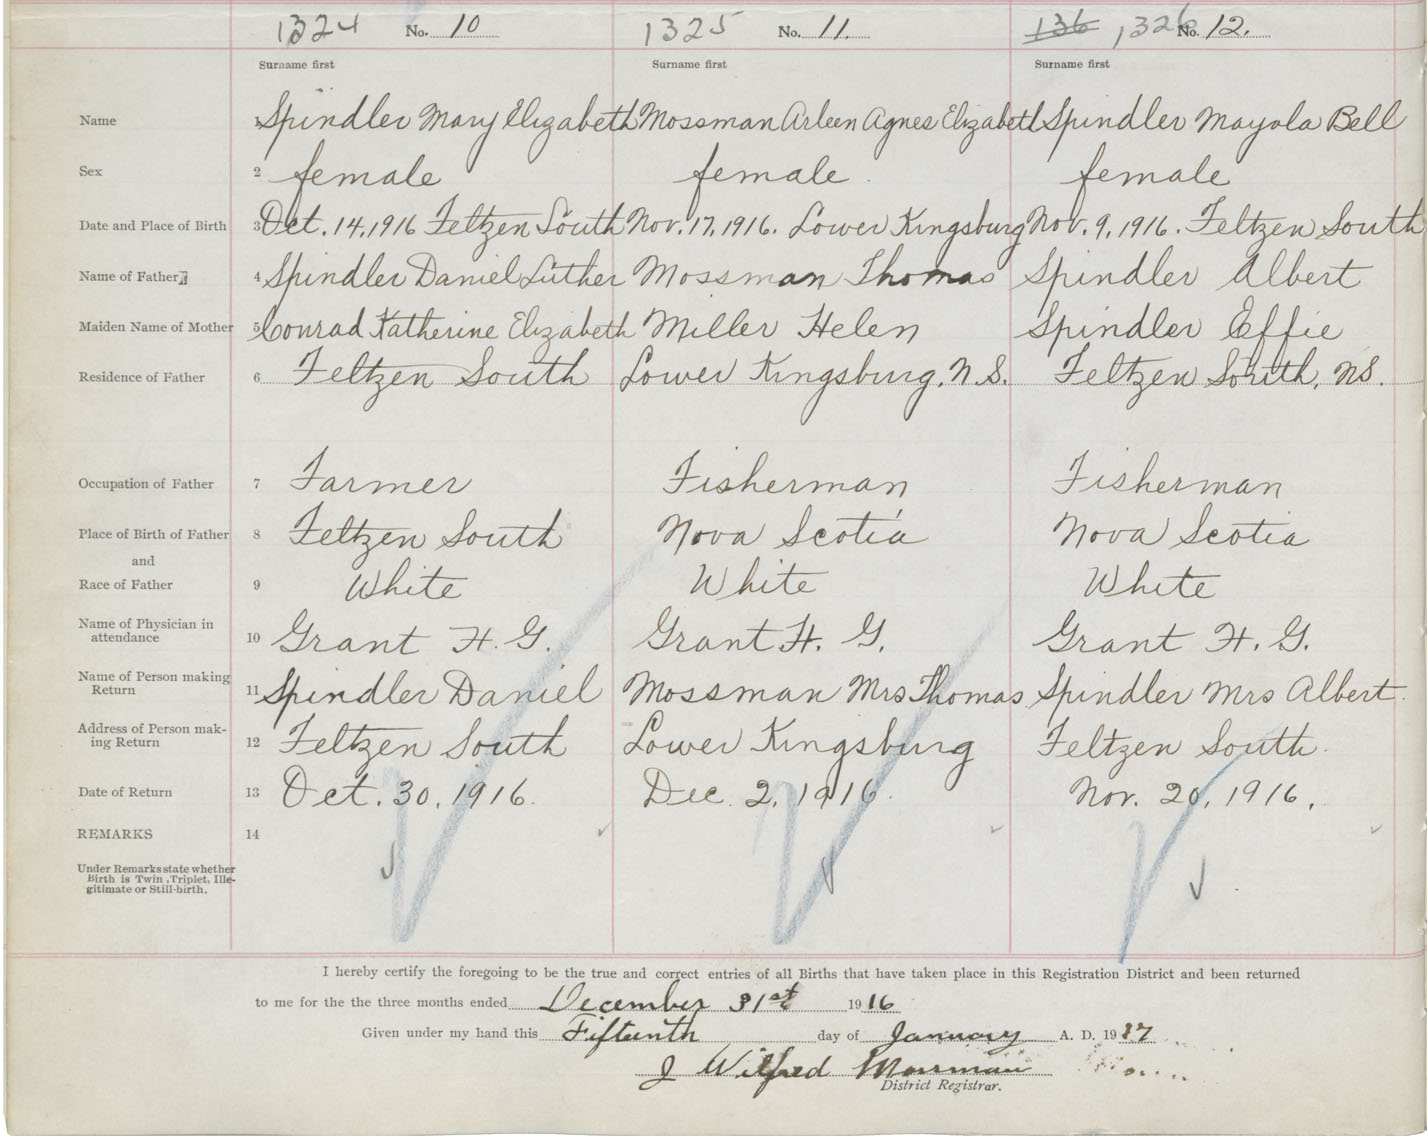 1324 No. 10 1325 No. 11. 136 1326 No. 12.
Surname first Surname first Surname first
Name 1 Spindler Mary Elizabeth Mossman Arleen Agnes Elizabeth Spindler Mayola Bell
Sex 2 female female female
Date and Place of Birth 3 Oct. 14, 1916 Feltzen South Nov. 17, 1916. Lower Kingsburg Nov. 9, 1916. Feltzen South
Name of Father 4 Spindler Daniel Luther Mossman Thomas Spindler Albert
Maiden Name of Mother 5 Conrad Katherine Elizabeth Miller Helen Spindler Effie
Residence of Father 6 Feltzen South Lower Kingsburg, N.S. Feltzen South, NS.
Occupation of Father 7 Farmer Fisherman Fisherman
Place of Birth of Father 8 Feltzen South Nova Scotia Nova Scotia
and
Race of Father 9 White White White
Name of Physician in
attendance 10 Grant H. G. Grant H. G. Grant H. G.
Name of Person making
Return 11 Spindler Daniel Mossman Mrs Thomas Spindler Mrs Albert.
Address of Person mak-
ing Return 12 Feltzen South Lower Kingsburg Feltzen South.
Date of Return 13 Oct. 30, 1916. Dec. 2, 1916. Nov. 20, 1916.
REMARKS 14
Under Remarks state whether
Birth is Twin, Triplet, Ille-
gitimate or Still-birth.
I hereby certify the foregoing to be the true and correct entries of all Births that have taken place in this Registration District and been returned
to me for the the three months ended December 31st 1916
Given under my hand this Fifteenth day of January A. D. 1917
J Wilfred Mossman
District Registrar.